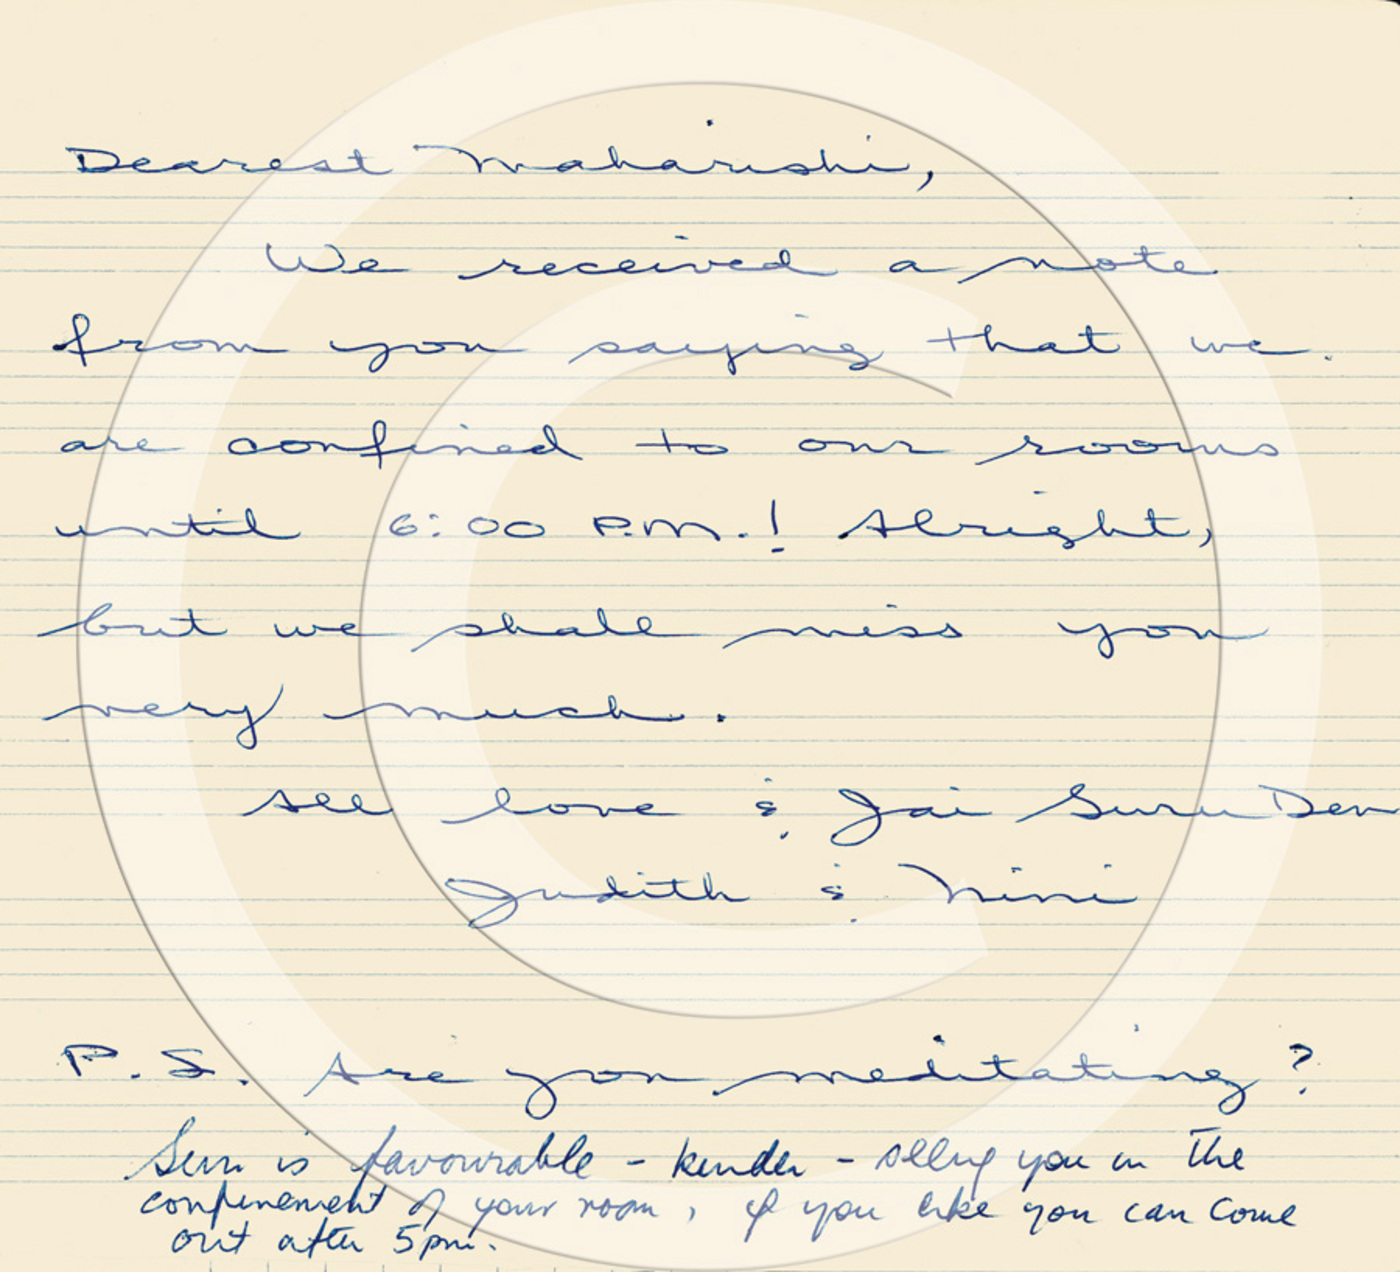 Dearest Maharishi,
We received a note
from you saying that we
are confined to our rooms
until 6:00 P.M.! Alright,
but we shall miss you
very much.
All love & Jai Guru Dev
Judith & Nini
P.S. Are you meditating?
Sun is favourable - kinder - seeing you in the
confinement of your room, if you like you can come
out after 5pm.